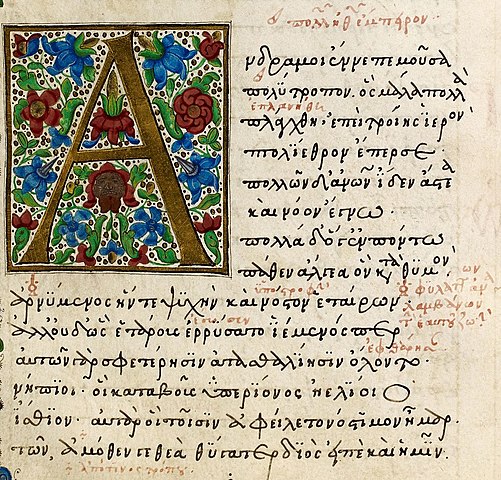 Ἄνδρα μοι ἔννεπε μοῦσα
πολύτροπον· ὃς μάλα πολλὰ
ἐπλανήθη
πλάγχθη· ἐπεὶ τροίης ἱερὸν
πτολίεθρον ἔπερσε·
πολλῶν δ' ἀνθρώπων ἴδεν ἄστεα
καὶ νόον ἔγνω·
πολλὰ δ' ὅγ' ἐν πόντω
πάθεν ἄλγεα ὃν κατὰ θυμὸν
ἀρνύμενος ἥν τε ψυχὴν καὶ νόστον ἑταίρων
ἀλλ' οὐδ' ὣς ἑτάρους ἐρρύσατο ἱέμενός περ
αὐτῶν γὰρ σφετέρησιν ἀτασθαλίησιν ὄλοντο·
νήπιοι· οἳ κατὰ βοῦς ὑπερίονος ἠελίοιο
ἤσθιον· αὐτὰρ ὁ τοῖσιν ἀφείλετο νόστιμον ἦμαρ·
τῶν ἀμόθεν γε θεὰ θύγατερ διὸς εἰπὲ καὶ ἡμῖν·